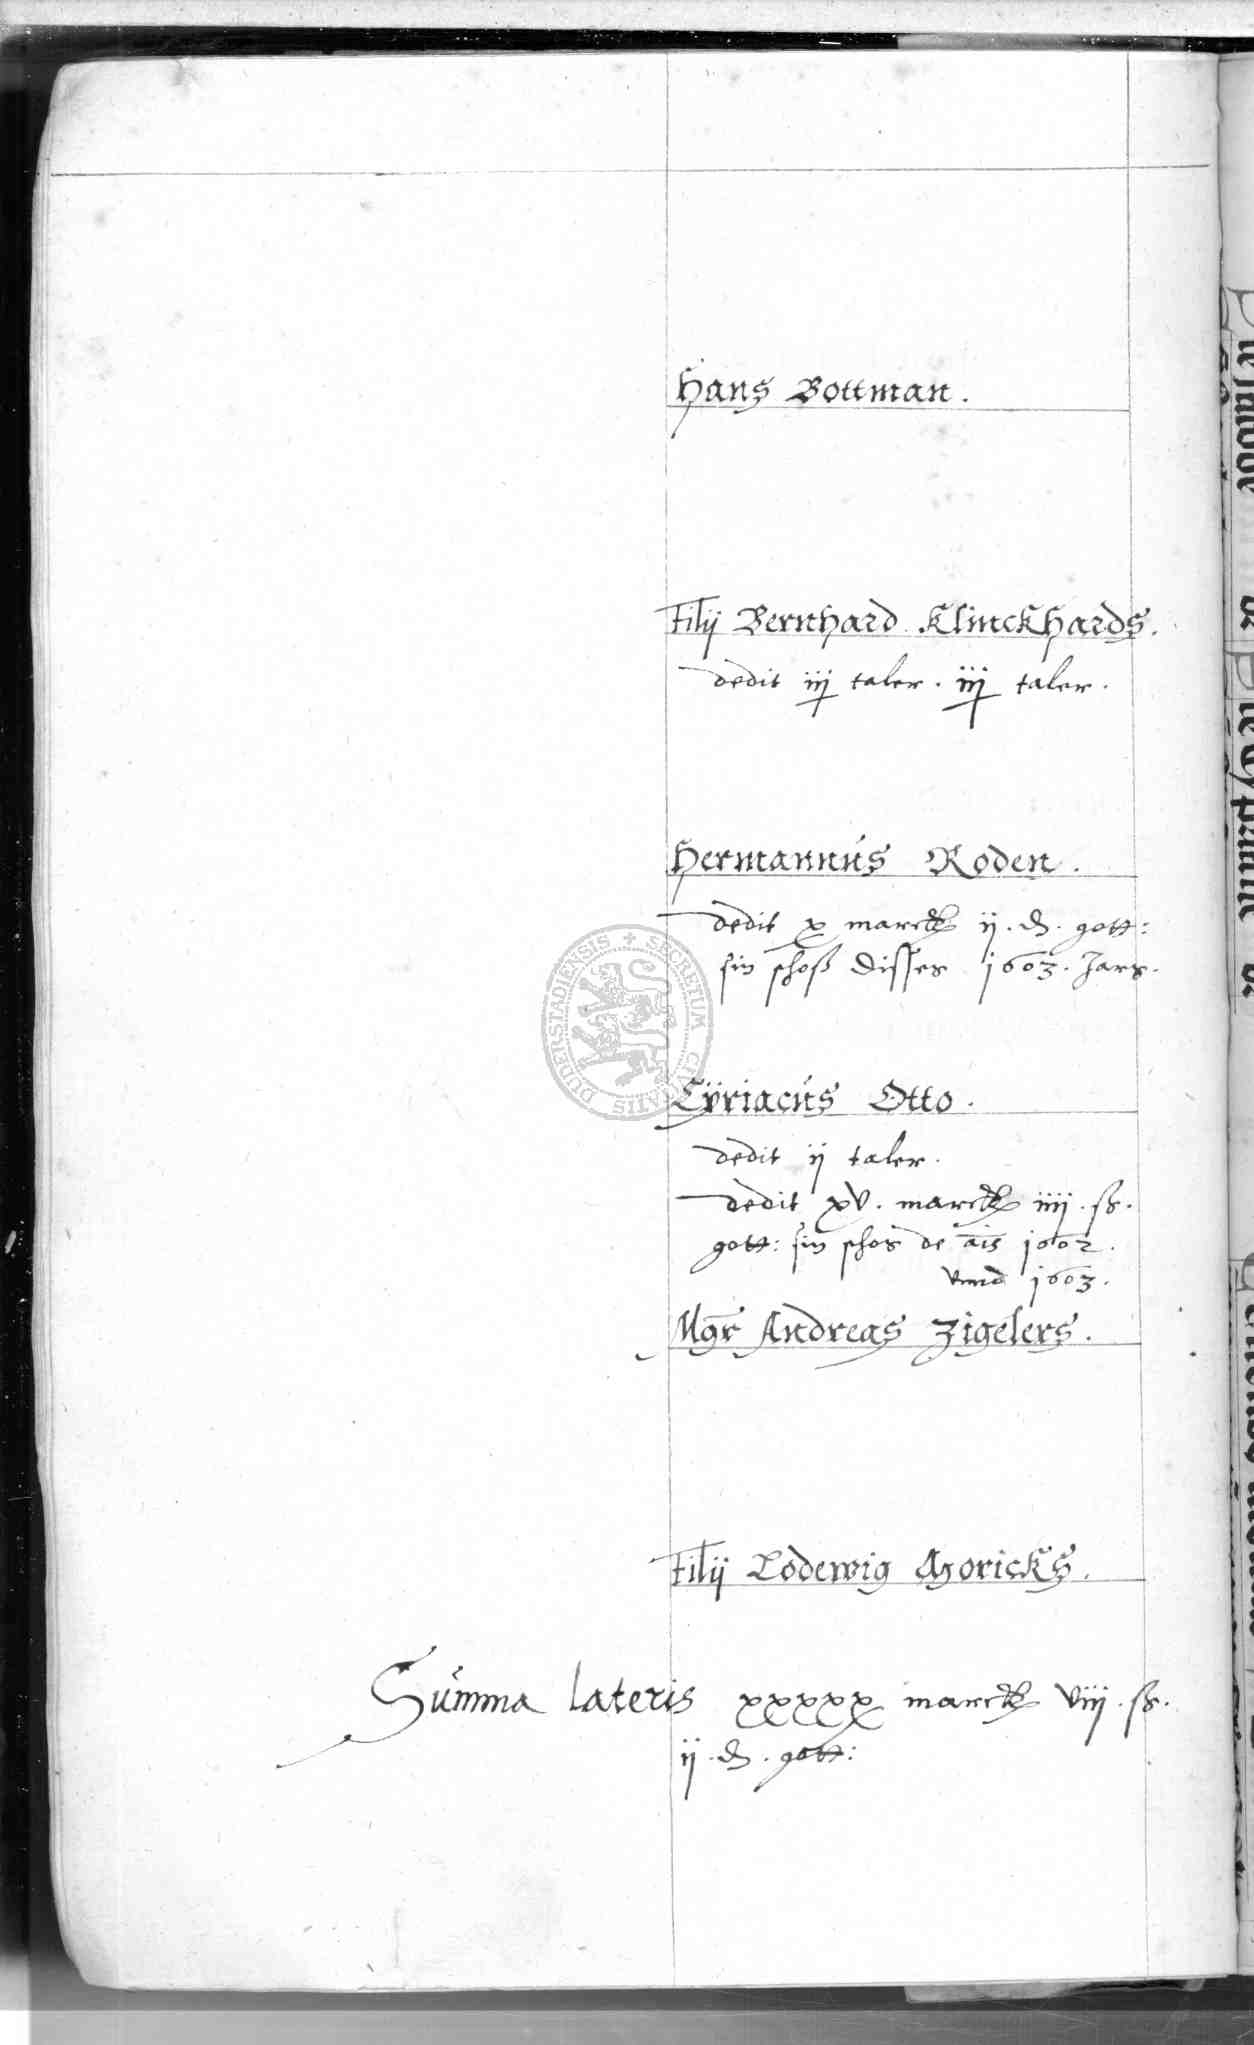 Hans Bottman.
Filij Bernhard Klinckhards.
dedit iij taler. iij taler.
Hermannus Roden.
dedit x marck ij. d. gott:
sin schoß disses 1603. Jars.
DUDERSTADIENSIS + SECRETUM CIVITATIS
Cÿriacus Otto.
dedit ij taler.
dedit xv. marck iiij. ß.
gott: sin schos de ais 1602.
vnnd 1603.
Mgr Andreas Zigelers.
Filij Lodewig Moricks.
Summa lateris xxxxx marck viij. ß.
ij. d. gott: